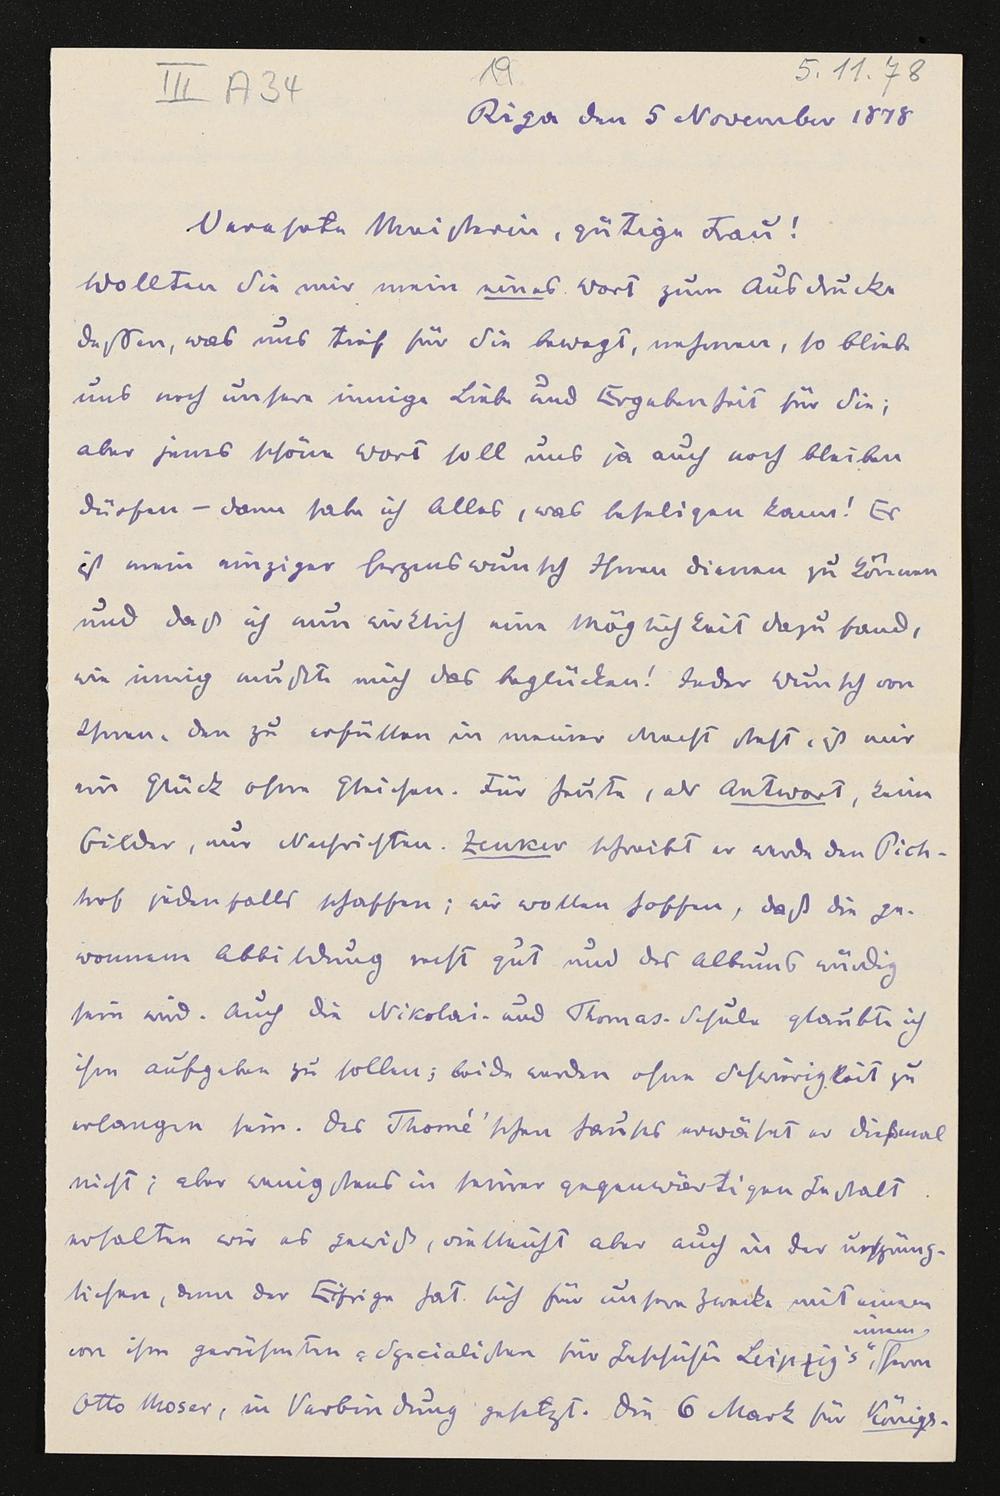 III A 34 19 5.11.78
Riga den 5 November 1878
Verehrte Meisterin, gütige Frau!
Wollten Sie mir mein eines Wort zum Ausdrucke
dessen, was uns tief für Sie bewegt, nehmen, so bliebe
uns noch unsere innige Liebe und Ergebenheit für Sie;
aber jenes schöne Wort soll uns ja auch noch bleiben
dürfen – dann habe ich Alles, was beseligen kann! Es
ist mein einziger Herzenswunsch Ihnen dienen zu können
und daß ich nun wirklich eine Möglichkeit dazu fand,
wie innig mußte mich das beglücken! Jeder Wunsch von
Ihnen, den zu erfüllen in meiner Macht steht, ist mir
ein Glück ohne Gleichen. Für heute, als Antwort, keine
Bilder, nur Nachrichten. Zenker schreibt er werde den Pich-
hof jedenfalls schaffen; wir wollen hoffen, daß die ge-
wonnene Abbildung recht gut und des Albums würdig
sein wird. Auch die Nikolai- und Thomas-Schule glaubte ich
ihm aufgeben zu sollen; beide werden ohne Schwierigkeit zu
erlangen sein. Des Thomé'schen Hauses erwähnt er dießmal
nicht; aber wenigstens in seiner gegenwärtigen Gestalt
erhalten wir es gewiß, vielleicht aber auch in der ursprüng-
lichen, denn der Eifrige hat sich für unsere Zwecke mit einem
von ihm gerühmten „Specialisten für Geschichte Leipzig's“, einem Herrn
Otto Moser, in Verbindung gesetzt. Die 6 Mark für Königs-